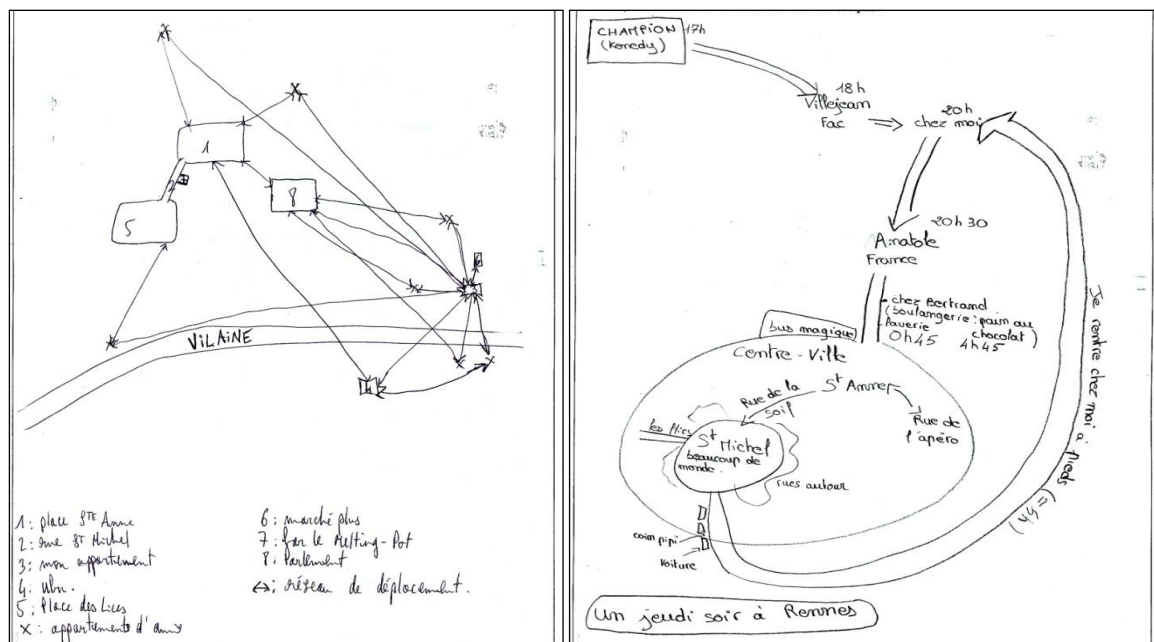 1
2
8
5
VILAINE
4
1: place STE Anne
2: rue ST Michel
3: mon appartement
4:
5: Place des Lices
X: appartements d'amis
6: marché plus
7: bar le Melting-Pot
8: Parlement
↔: réseau de déplacement.
CHAMPION 17h
(Kenedy)
18h
Villejean
Fac
20h
chez moi
20h30
Anatole
France
chez Bertrand
(boulangerie: pain au
chocolat)
laverie
0h45
4h45
bus magique
Centre-Ville
St Anne
Rue de la
soif
Rue de
l'apéro
les flics
St Michel
beaucoup de
monde.
rues autour
coin pipi
voiture
Je rentre chez moi à pieds (≈5h)
Un jeudi soir à Rennes